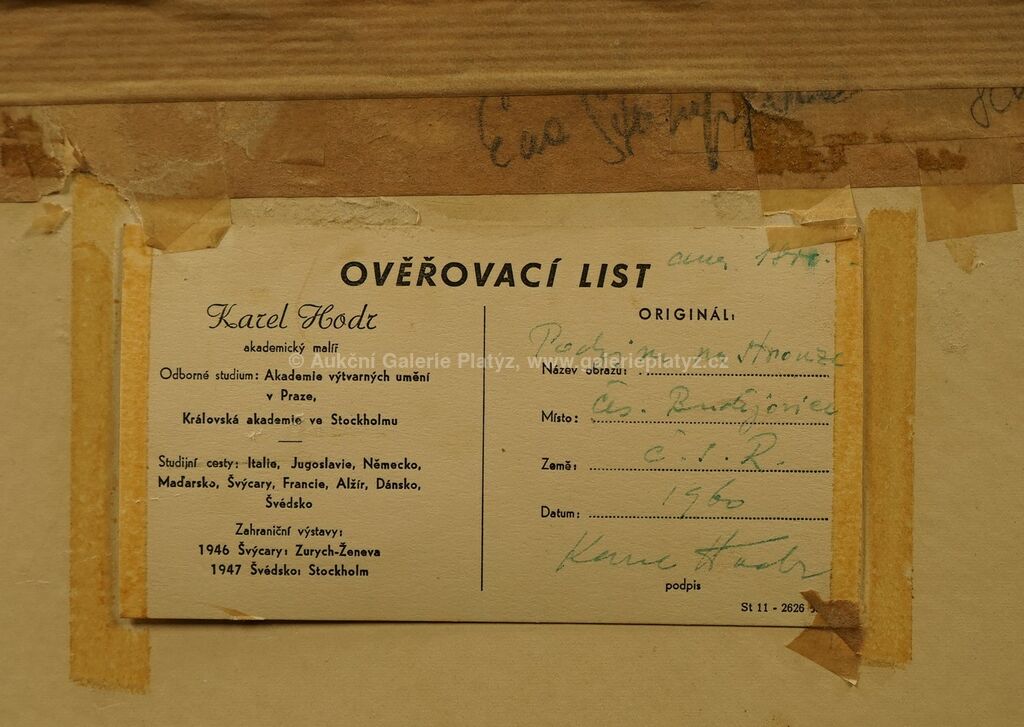 Eva
OVĚŘOVACÍ LIST
Karel Hodr
akademický malíř
Odborné studium: Akademie výtvarných umění
v Praze,
Královská akademie ve Stockholmu
Studijní cesty: Italie, Jugoslavie, Německo,
Maďarsko, Švýcary, Francie, Alžír, Dánsko,
Švédsko
Zahraniční výstavy:
1946 Švýcary: Zurych-Ženeva
1947 Švédsko: Stockholm
ORIGINÁL:
Název obrazu: Podzim na Hrouze
Místo: Čes. Budějovice
Země: Č.S.R.
Datum: 1960
Karel Hodr
podpis
St 11 - 2626
© Aukční Galerie Platýz, www.galerieplatyz.cz